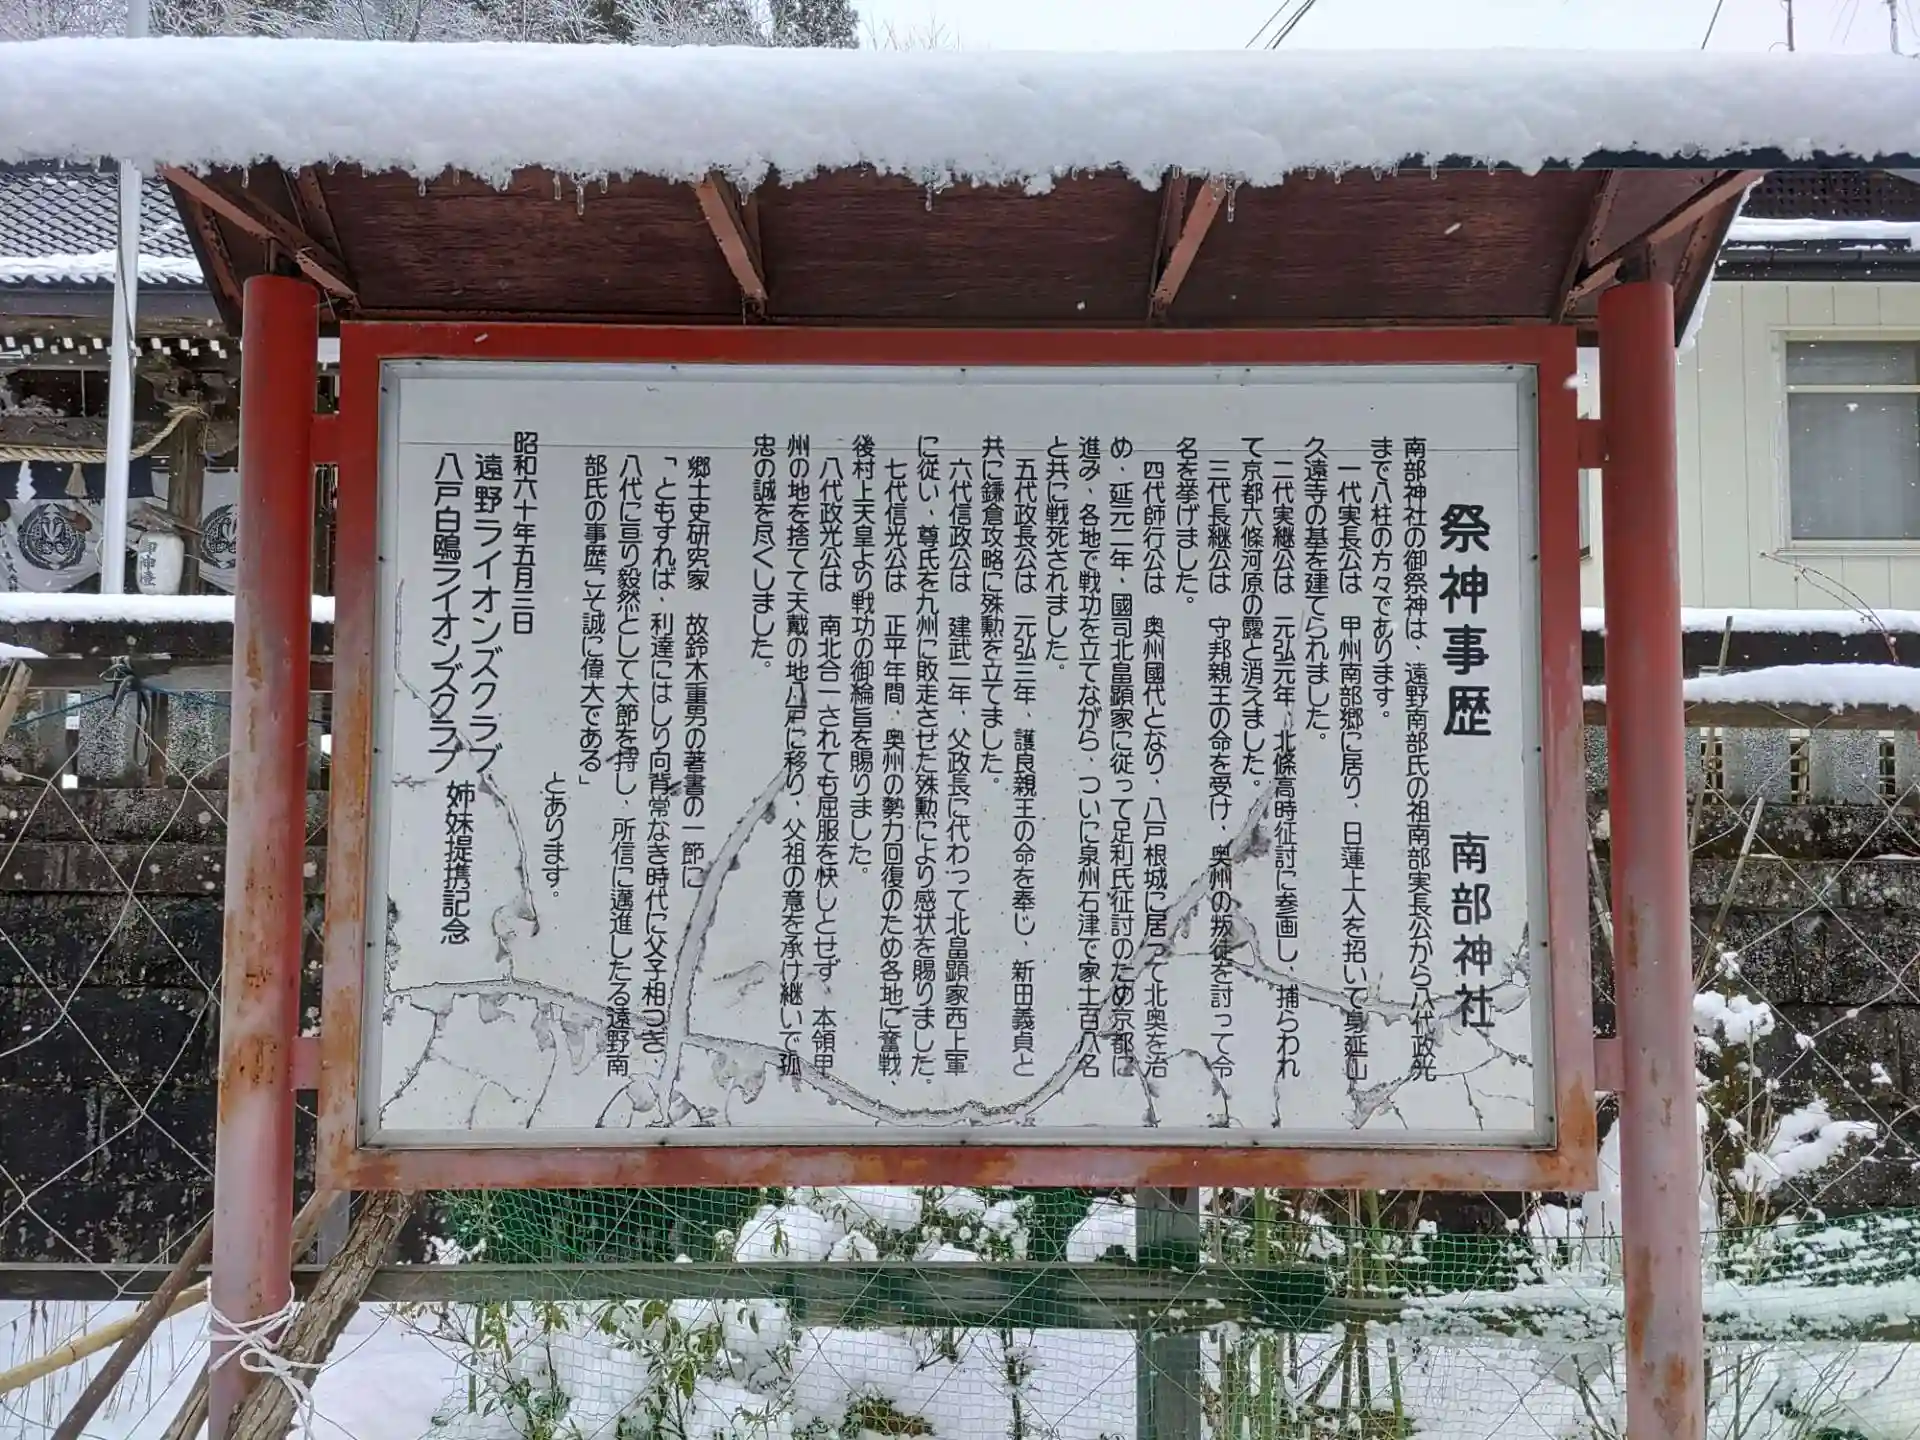 祭神事歴　南部神社
南部神社の御祭神は、遠野南部氏の祖南部実長公から八代政光
まで八柱の方々であります。
一代実長公は　甲州南部郷に居り、日蓮上人を招いて身延山
久遠寺の基を建てられました。
二代実継公は　元弘元年、北條高時征討に参画し、捕らわれ
て京都六條河原の露と消えました。
三代長継公は　守邦親王の命を受け、奥州の叛徒を討って令
名を挙げました。
四代師行公は　奥州國代となり、八戸根城に居って北奥を治
め、延元二年、國司北畠顕家に従って足利氏征討のため京都に
進み、各地で戦功を立てながら、ついに泉州石津で家士百八名
と共に戦死されました。
五代政長公は　元弘三年、護良親王の命を奉じ、新田義貞と
共に鎌倉攻略に殊勲を立てました。
六代信政公は　建武二年、父政長に代わって北畠顕家西上軍
に従い、尊氏を九州に敗走させた殊勲により感状を賜りました。
七代信光公は　正平年間、奥州の勢力回復のため各地に奮戦、
後村上天皇より戦功の御綸旨を賜りました。
八代政光公は　南北合一されても屈服を快しとせず、本領甲
州の地を捨てて天戴の地八戸に移り、父祖の意を承け継いで孤
忠の誠を尽くしました。
郷土史研究家　故鈴木重男の著書の一節に
「ともすれば、利達にはしり向背常なき時代に父子相つぎ、
八代に亘り毅然として大節を持し、所信に邁進したる遠野南
部氏の事歴こそ誠に偉大である」
とあります。
昭和六十年五月三日
遠野ライオンズクラブ
八戸白鴎ライオンズクラブ
姉妹提携記念